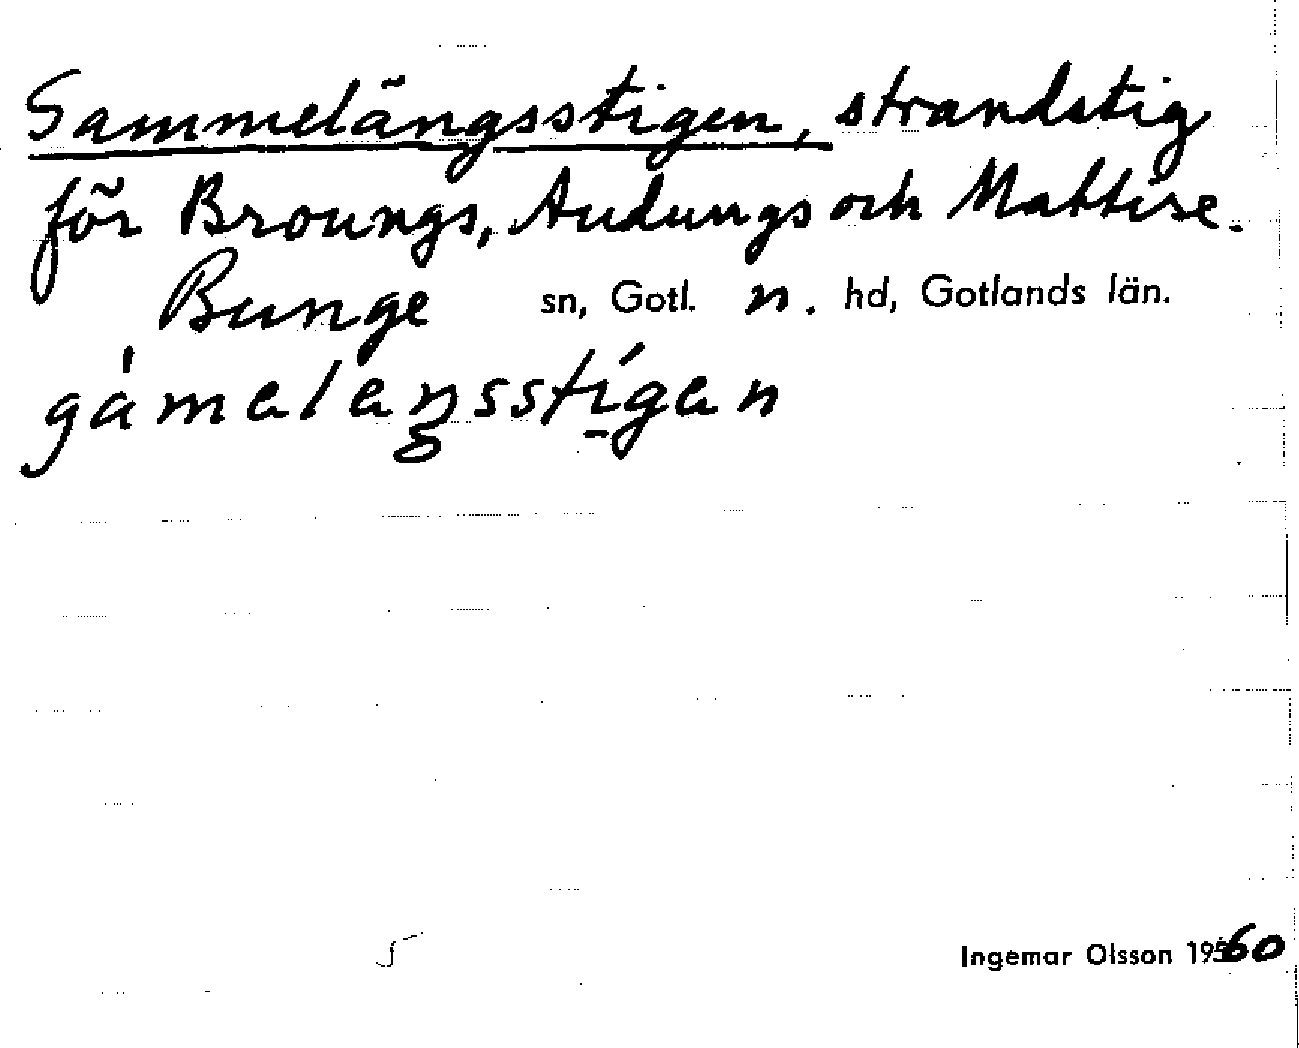 Sammelängsstigen, strandstig
för Broungs, Audungs och Mattise.
Bunge sn, Gotl. n. hd, Gotlands län.
gámelaŋsstígan
Ingemar Olsson 1960